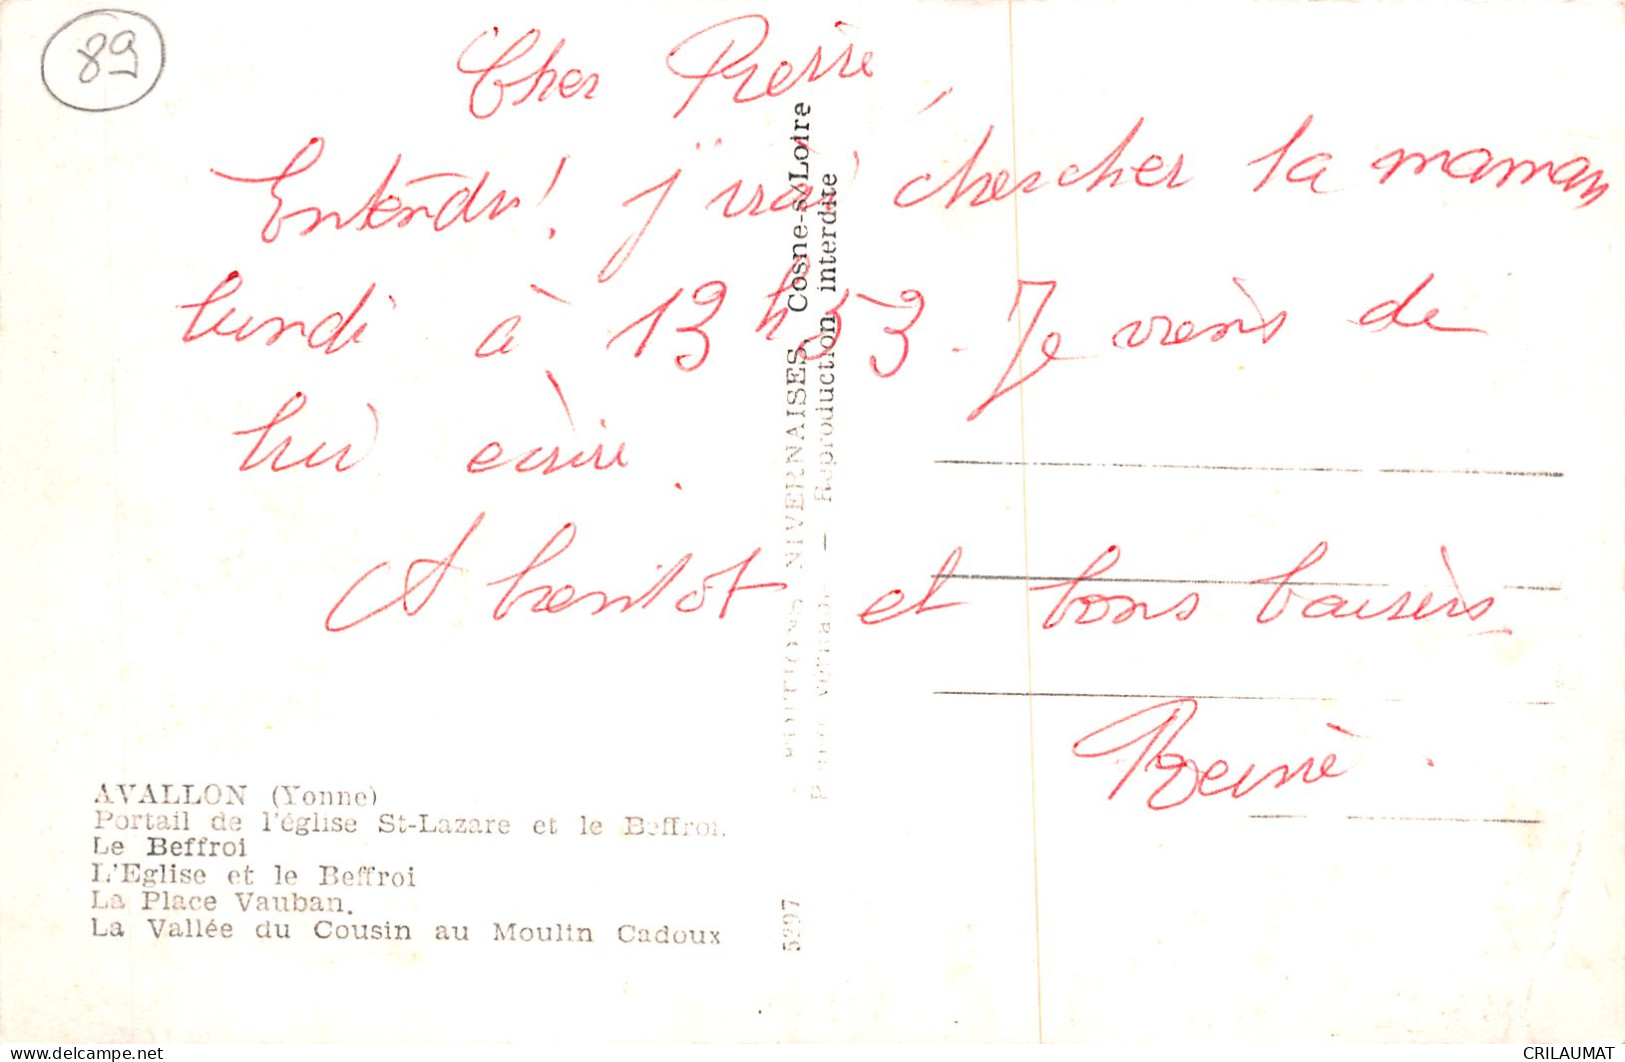 89
Cher Pierre,
Entendu! j'irai chercher ta maman
lundi à 13h53. Je viens de
lui écrire.
A bientôt et bons baisers
Reine.
EDITIONS NIVERNAISES, Cosne-s/Loire
— Reproduction interdite
5297
AVALLON (Yonne)
Portail de l'église St-Lazare et le Beffroi.
Le Beffroi
L'Eglise et le Beffroi
La Place Vauban.
La Vallée du Cousin au Moulin Cadoux
CRILAUMAT